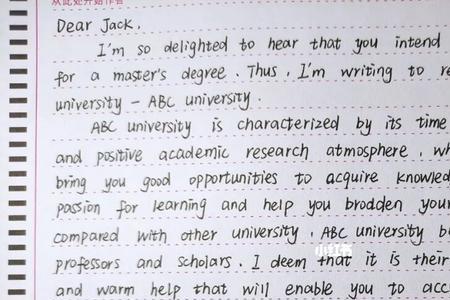 从此处开始作答
Dear Jack.
I'm so delighted to hear that you intend
for a master's degree. Thus, I'm writing to re
university - ABC university.
ABC university is characterized by its time
and positive academic research atmosphere, wh
bring you good opportunities to acquire knowled
passion for learning and help you brodden your
compared with other university, ABC university b
professors and scholars. I deem that it is their
and warm help that will enable you to acc
小红书